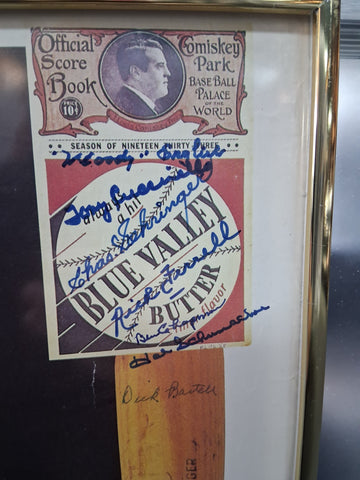 Official Score Book
PRICE 10¢
Comiskey Park
BASE BALL PALACE OF THE WORLD
SEASON OF NINETEEN THIRTY THREE
"Woody" English
Tony
Chas Gehringer
BLUE VALLEY
Rick Ferrell
BUTTER
flavor
Ben Chapman
Hal Schumacher
Dick Bartell
GER